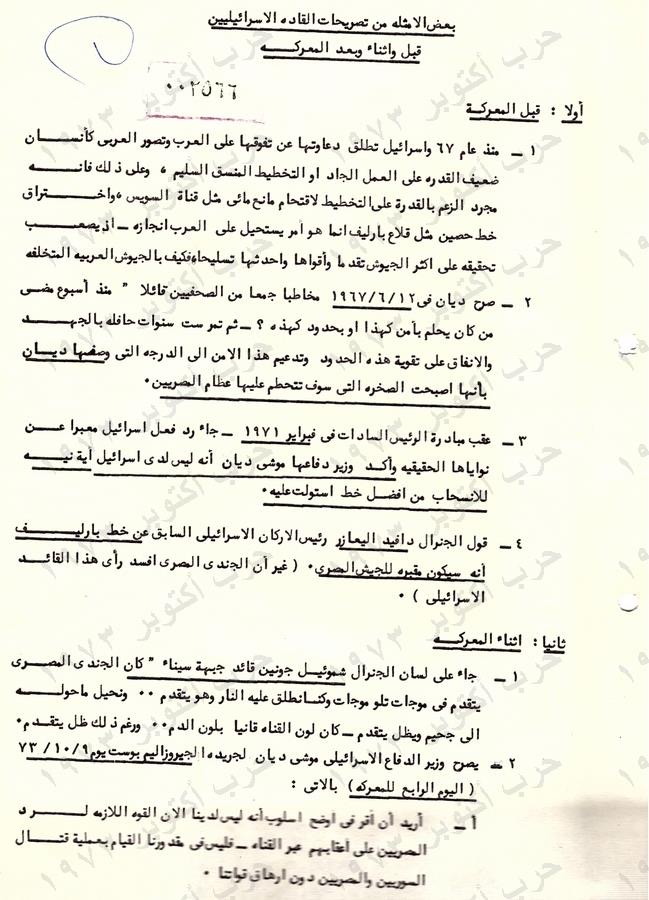 بعض الامثله من تصريحات القاده الاسرائيليين
قبل واثناء وبعد المعركــه
٠٠٢٥٦٦
أولا : قبل المعركـة
١ ــ منذ عام ٦٧ واسرائيل تطلق دعاوتها عن تفوقها على العرب وتصور العربى كأنسـان
ضعيف القدره على العمل الجاد او التخطيط المنسق السليم ، وعلى ذلك فانــه
مجرد الزعم بالقدرة على التخطيط لاقتحام مانع مائى مثل قناة السويس ، واختـراق
خط حصين مثل قلاع بارليف انما هو أمر يستحيل على العرب انجازه ــ اذ يصعــب
تحقيقه على اكثر الجيوش تقدما وأقواها واحدثها تسليحا، فكيف بالجيوش العربيه المتخلفه
٢ ــ صرح ديان فى ١٩٦٧/٦/١٢ مخاطبا جمعا من الصحفيين قائلا " منذ أسبوع مضـى
من كان يحلم بأمن كهذا او بحدود كهذه ؟ ــ ثم تمرست سنوات حافله بالجهــد
والانفاق على تقوية هذه الحدود وتدعيم هذا الامن الى الدرجه التى وصفها ديـان
بأنها اصبحت الصخره التى سوف تتحطم عليها عظام المصريين٠
٣ ــ عقب مبادرة الرئيس السادات فى فبراير ١٩٧١ ــ جاء رد فعل اسرائيل معبرا عــن
نواياها الحقيقيه وأكـد وزير دفاعها موشى ديان أنه ليس لدى اسرائيل أية نيــه
للانسحاب من افضل خط استولت عليه٠
٤ ــ قول الجنرال دافيد اليعازر رئيس الاركان الاسرائيلى السابق عن خط بارليــف
أنه سيكون مقبره للجيش المصري٠ ( غير أن الجندى المصرى افسد رأى هذا القائــد
الاسرائيلى ) ٠
ثانيا: اثناء المعركــه
١ ــ جاء على لسان الجنرال شموئيل جونين قائد جبهة سيناء " كان الجندى المصـرى
يتقدم فى موجات تلو موجات وكنا نطلق عليه النار وهو يتقدم ٠٠ ونحيل ماحولــه
الى جحيم ويظل يتقدم ــ كان لون القناه قانيا بلون الدم ٠٠ ورغم ذلك ظل يتقـدم٠
٢ ــ يصرح وزير الدفاع الاسرائيلى موشى ديان لجريده الجيروزاليم بوست يوم ٩/ ١٠/ ٧٣
( اليوم الرابع للمعركه ) بالاتى :
أ ــ أريد أن أقر فى اوضح اسلوب أنه ليس لدينا الان القوه اللازمه لــرد
المصريين على أعقابهم عبر القناه ــ فليس فى مقدورنا القيام بعملية قتــال
السوريين والمصريين دون ارهاق قواتنا ٠
حرب أكتوبر ١٩٧٣